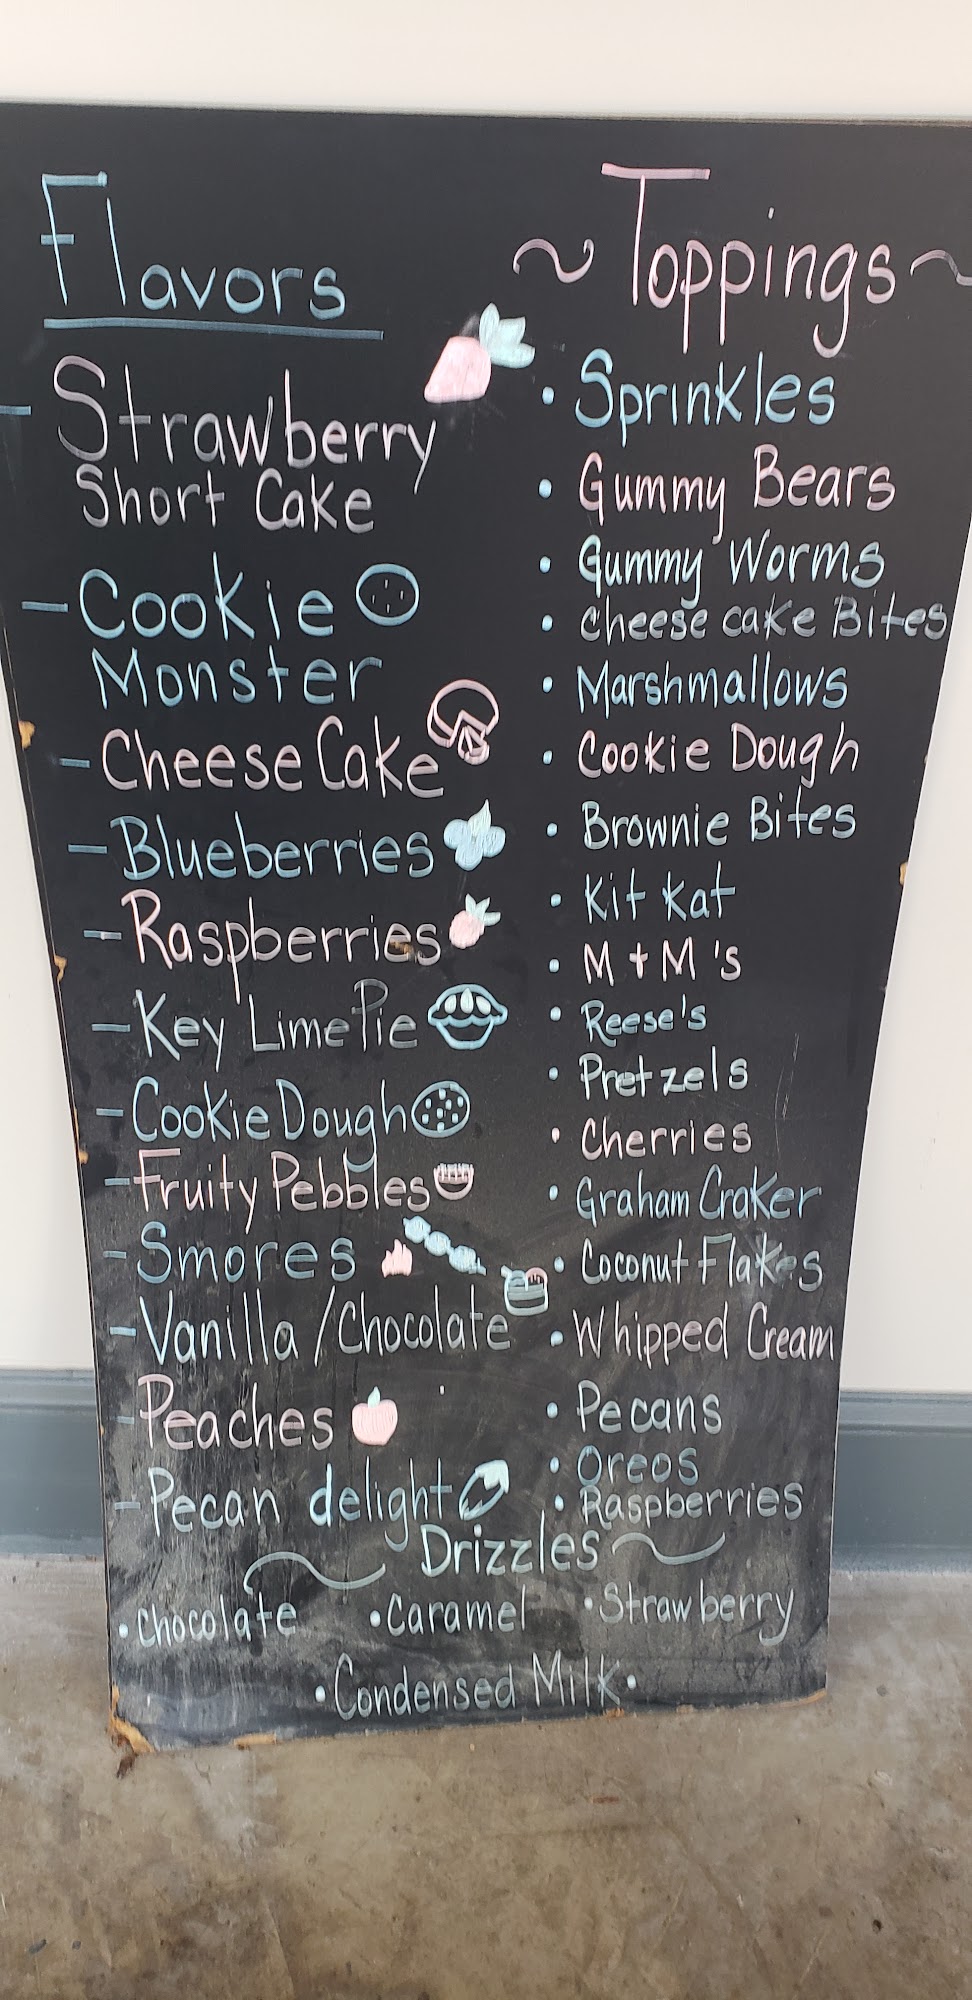 Flavors
- Strawberry
Short Cake
- Cookie
Monster
- Cheese Cake
- Blueberries
- Raspberries
- Key Lime Pie
- Cookie Dough
- Fruity Pebbles
- Smores
- Vanilla / Chocolate
- Peaches
- Pecan delight
~ Toppings ~
• Sprinkles
• Gummy Bears
• Gummy Worms
• Cheese cake Bites
• Marshmallows
• Cookie Dough
• Brownie Bites
• Kit Kat
• M + M's
• Reese's
• Pretzels
• Cherries
• Graham Craker
• Coconut Flakes
• Whipped Cream
• Pecans
• Oreos
• Raspberries
~ Drizzles ~
• Chocolate • Caramel • Strawberry
• Condensed Milk •